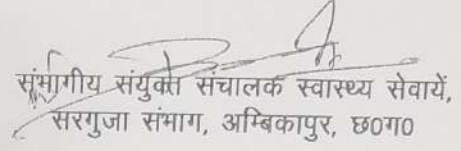 संभागीय संयुक्त संचालक स्वास्थ्य सेवायें,
सरगुजा संभाग, अम्बिकापुर, छ0ग0